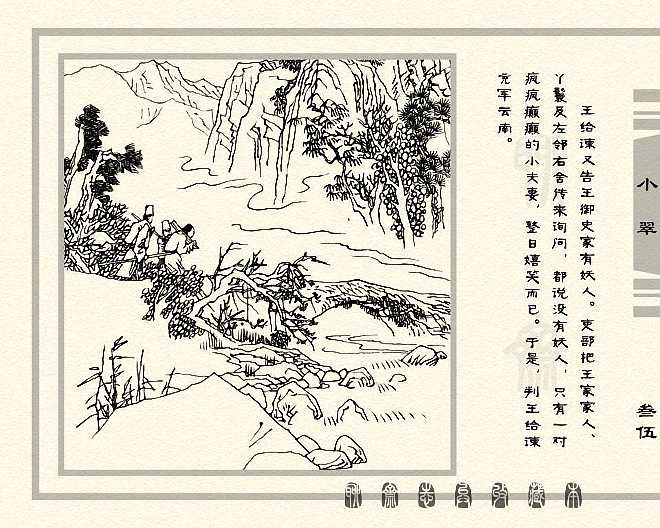 王给谏又告王御史家有妖人。吏部把王家家人、
丫鬟及左邻右舍传来询问，都说没有妖人，只有一对
疯疯癫癫的小夫妻，整日嬉笑而已。于是，判王给谏
充军云南。
小翠
叁伍
聊斋志异收藏本